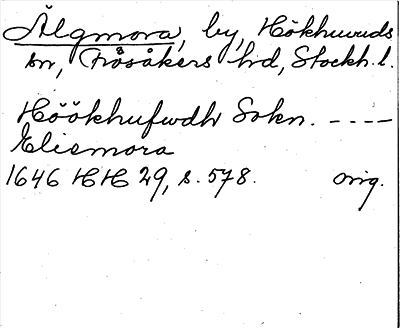 Älgmora, by, Hökhuvuds
sn, Frösåkers hd, Stockh. l.
Höökhufwdh Sokn. ----
Eliemora
1646 HH 29, s. 578. orig.